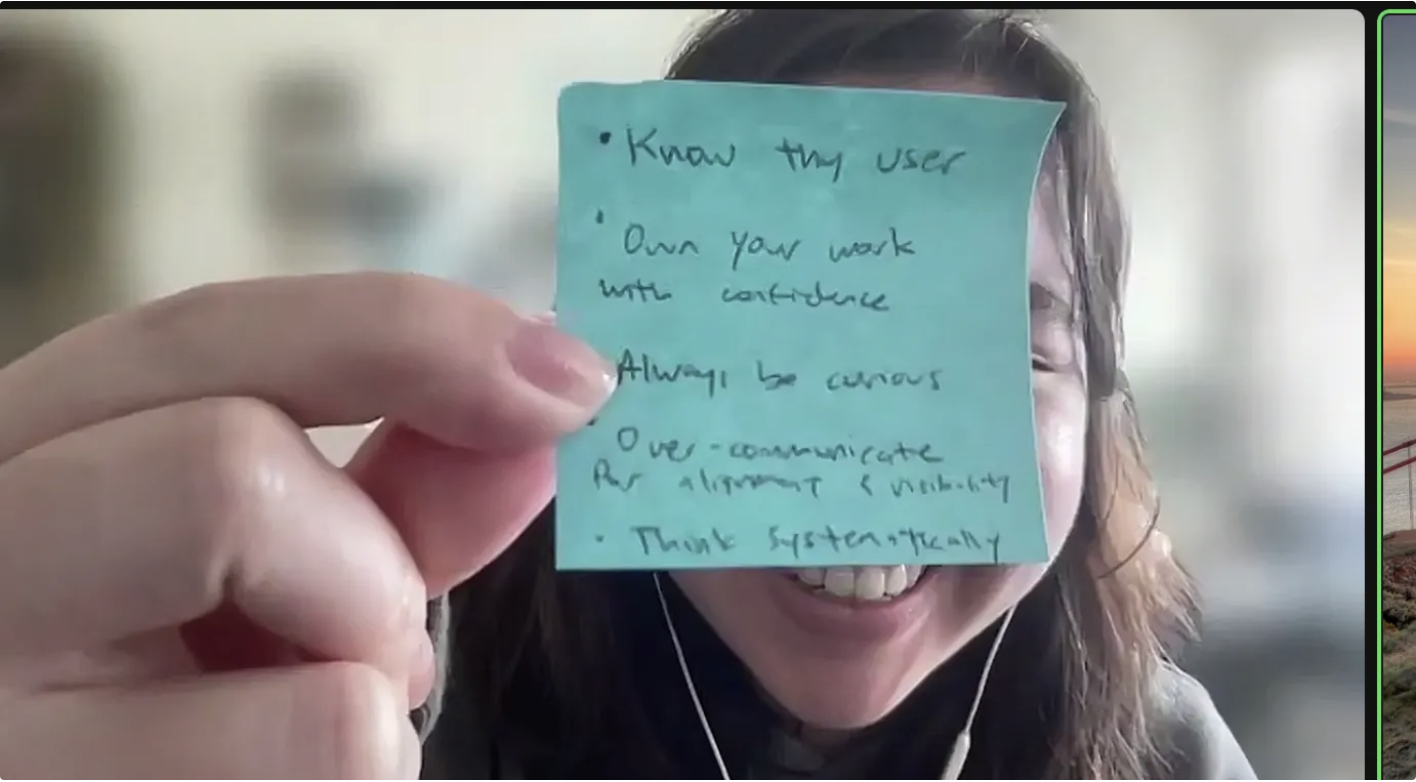 • Know thy user
• Own your work
with confidence
Always be curious
• Over-communicate
for alignment & visibility
• Think systematically